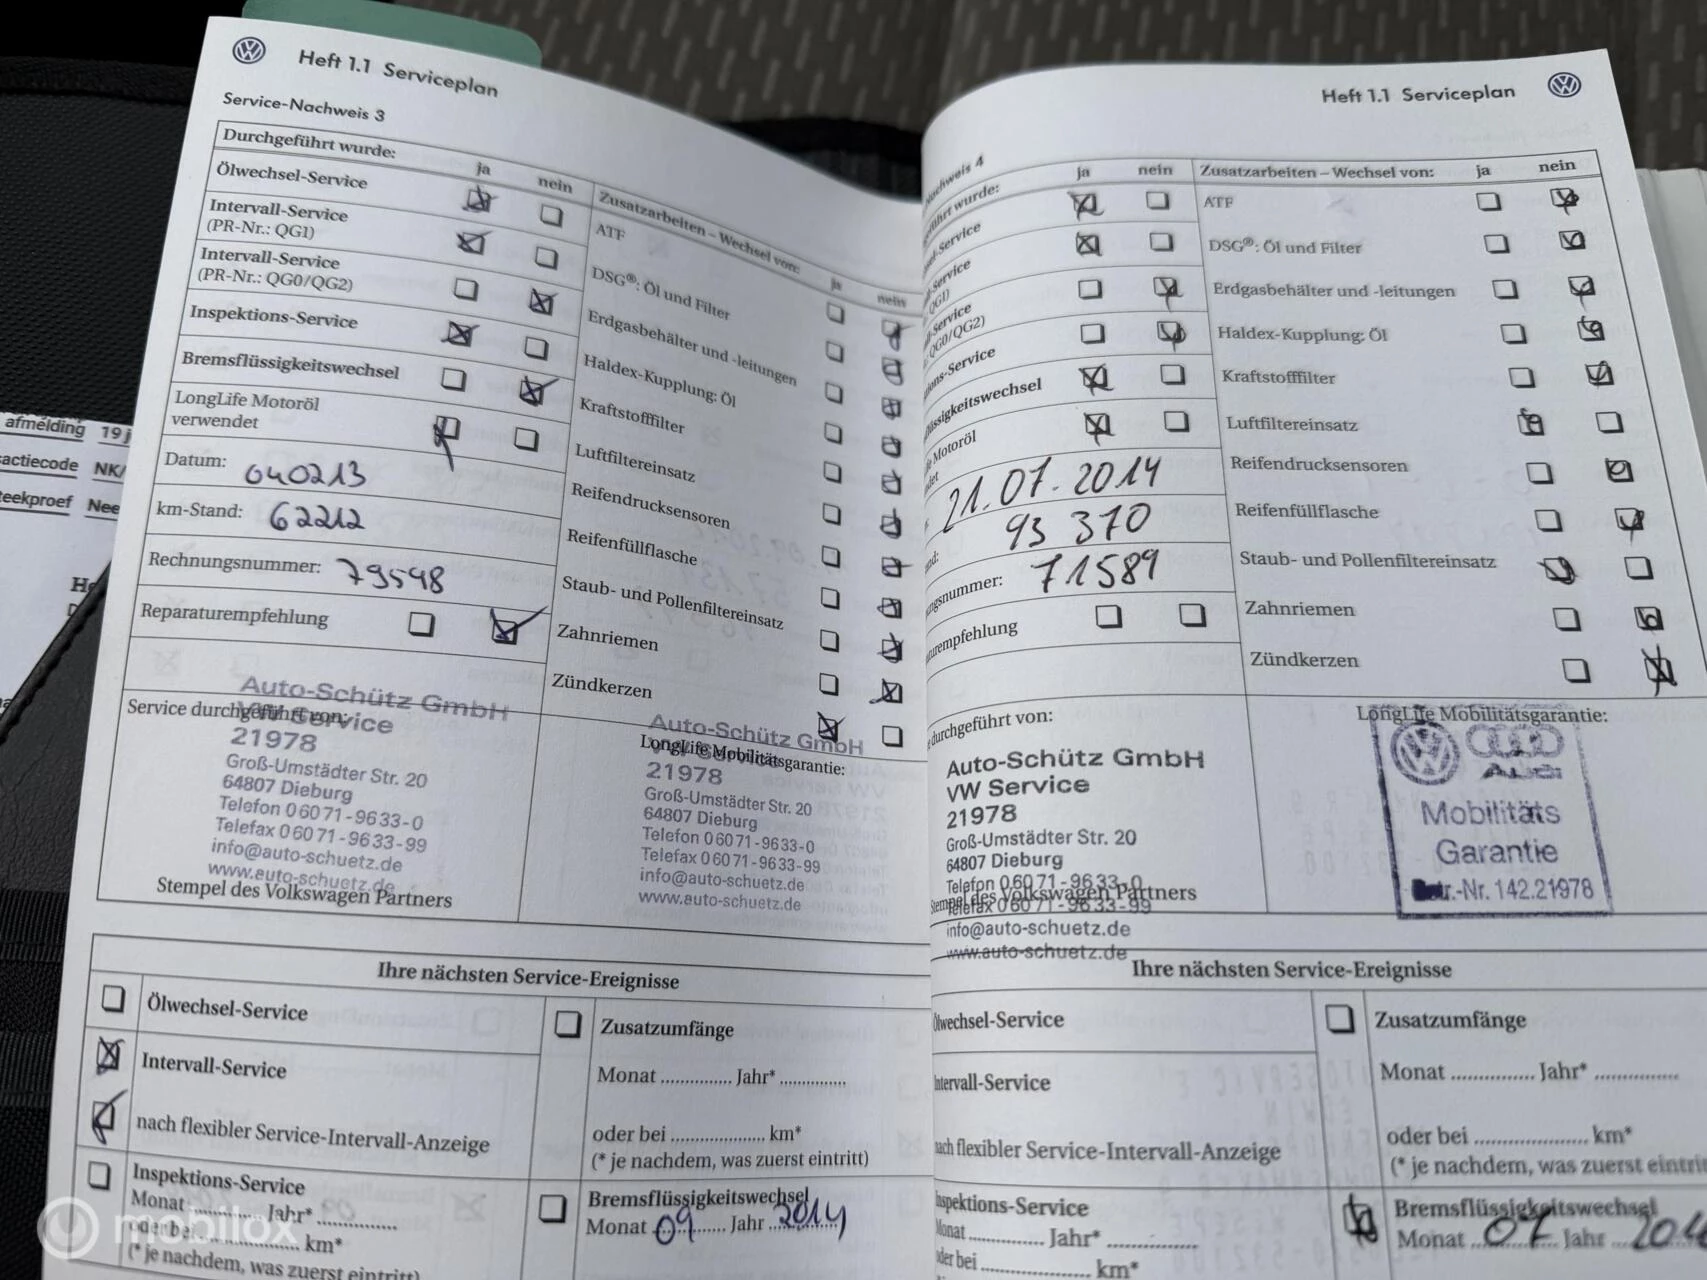 Heft 1.1 Serviceplan
Service-Nachweis 3
Durchgeführt wurde:
ja
nein
Ölwechsel-Service
Intervall-Service
(PR-Nr.: QG1)
Intervall-Service
(PR-Nr.: QG0/QG2)
Inspektions-Service
Bremsflüssigkeitswechsel
LongLife Motoröl
verwendet
Datum: 040213
km-Stand: 62212
Rechnungsnummer: 79548
Reparaturempfehlung
Zusatzarbeiten – Wechsel von:
ja
nein
ATF
DSG®: Öl und Filter
Erdgasbehälter und -leitungen
Haldex-Kupplung: Öl
Kraftstofffilter
Luftfiltereinsatz
Reifendrucksensoren
Reifenfüllflasche
Staub- und Pollenfiltereinsatz
Zahnriemen
Zündkerzen
Service durchgeführt von:
Auto-Schütz GmbH
VW Service
21978
Groß-Umstädter Str. 20
64807 Dieburg
Telefon 0 60 71 - 96 33-0
Telefax 0 60 71 - 96 33-99
info@auto-schuetz.de
www.auto-schuetz.de
Stempel des Volkswagen Partners
LongLife Mobilitätsgarantie:
Auto-Schütz GmbH
VW Service
21978
Groß-Umstädter Str. 20
64807 Dieburg
Telefon 0 60 71 - 96 33-0
Telefax 0 60 71 - 96 33-99
info@auto-schuetz.de
www.auto-schuetz.de
Ihre nächsten Service-Ereignisse
Ölwechsel-Service
Intervall-Service
nach flexibler Service-Intervall-Anzeige
Inspektions-Service
Monat ............... Jahr* ...............
oder bei ............... km*
(* je nachdem, was zuerst eintritt)
Zusatzumfänge
Monat ............... Jahr* ...............
oder bei .................... km*
(* je nachdem, was zuerst eintritt)
Bremsflüssigkeitswechsel
Monat 09 Jahr 2014
Heft 1.1 Serviceplan
Nachweis 4
wurde:
ja
nein
-Service
-Service
QG1)
-Service
QG0/QG2)
-Service
Motoröl
21.07.2014
93 370
71589
Zusatzarbeiten – Wechsel von:
ja
nein
ATF
DSG®: Öl und Filter
Erdgasbehälter und -leitungen
Haldex-Kupplung: Öl
Kraftstofffilter
Luftfiltereinsatz
Reifendrucksensoren
Reifenfüllflasche
Staub- und Pollenfiltereinsatz
Zahnriemen
Zündkerzen
durchgeführt von:
Auto-Schütz GmbH
VW Service
21978
Groß-Umstädter Str. 20
64807 Dieburg
Telefon 0 60 71 - 96 33-0
Telefax 0 60 71 - 96 33-99
info@auto-schuetz.de
www.auto-schuetz.de
Stempel des Volkswagen Partners
LongLife Mobilitätsgarantie:
Audi
Mobilitäts
Garantie
Betr.-Nr. 142.21978
Ihre nächsten Service-Ereignisse
Ölwechsel-Service
Intervall-Service
nach flexibler Service-Intervall-Anzeige
Inspektions-Service
Monat ............... Jahr* ...............
oder bei .................... km*
Zusatzumfänge
Monat ............... Jahr* ...............
oder bei .................... km*
(* je nachdem, was zuerst eintritt
Bremsflüssigkeitswechsel
Monat 07 Jahr
afmelding 19 j
actiecode NK/
teekproef Nee
mobilox